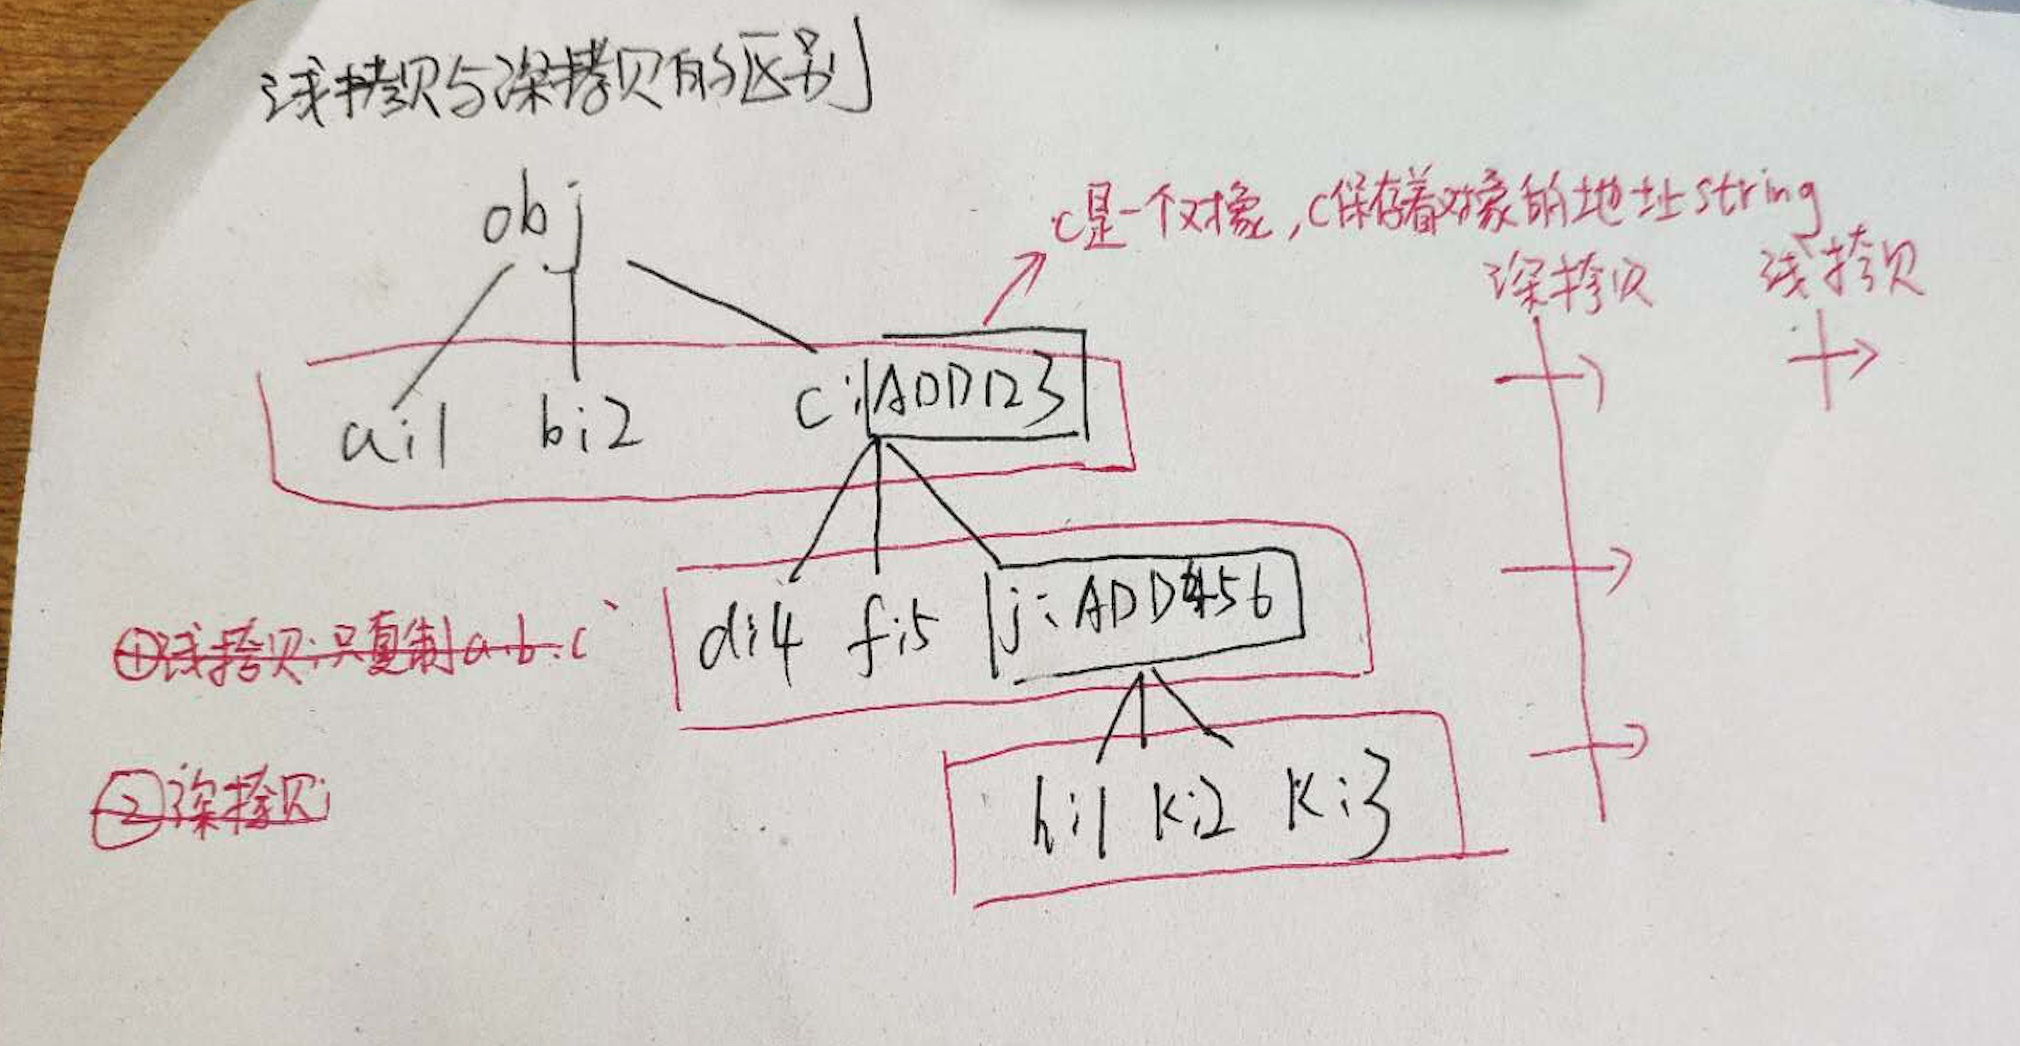 浅拷贝与深拷贝的区别
obj
c是一个对象,c保存着对象的地址string
深拷贝 浅拷贝
a:1 b:2 c:ADD123
d:4 f:5 j:ADD456
①浅拷贝:只复制a.b.c
h:1 k:2 k:3
②深拷贝: